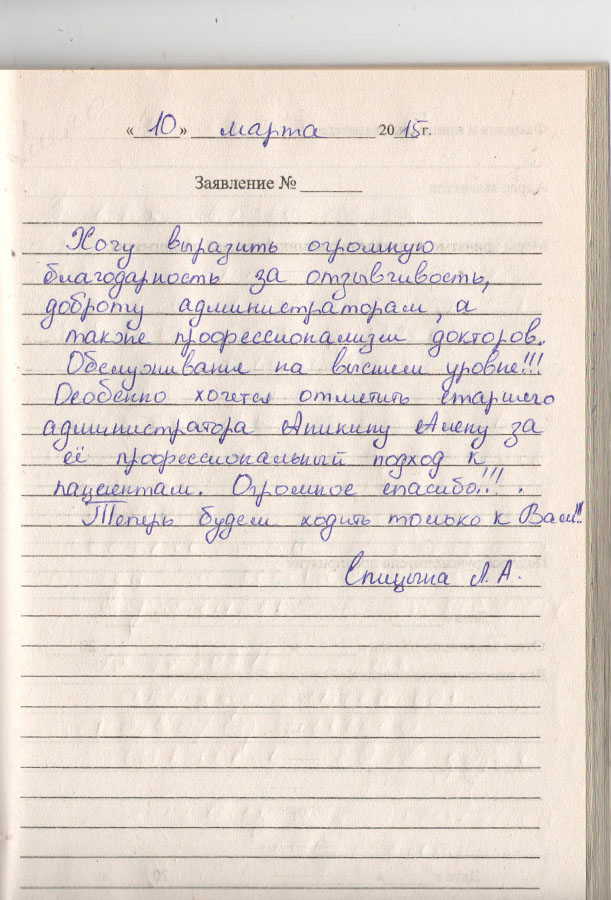 « 10 » марта 2015г.
Заявление №
Хочу выразить огромную
благодарность за отзывчивость,
доброту администраторам, а
также профессионализм докторов.
Обслуживания на высшем уровне!!!
Особенно хочется отметить старшего
администратора Аникину Алену за
её профессиональный подход к
пациентам. Огромное спасибо!!! .
Теперь будем ходить только к Вам!!
Спицына Л.А.